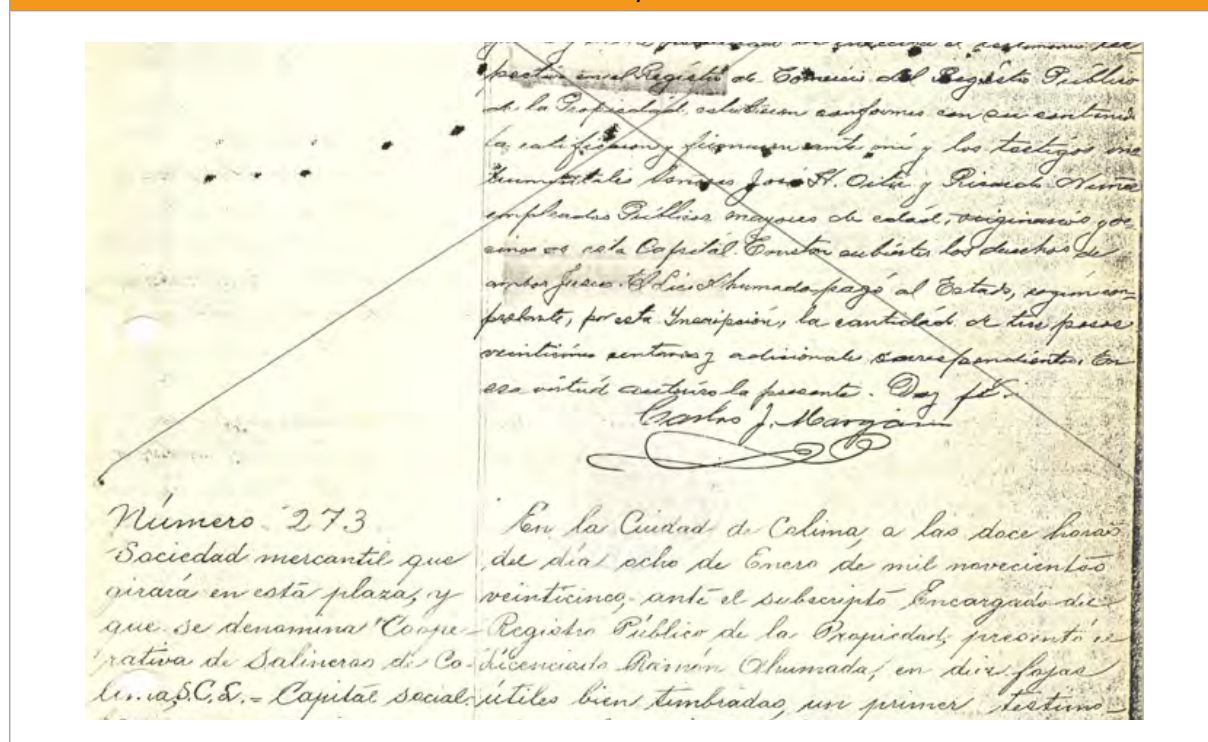 pectivo en el Registro de Comercio del Registro Público
de la Propiedad, estuvieron conformes con su contenido
la ratificaron y firmaron ante mí y los testigos ins
trumentales Señores José H. Ortiz y Ricardo Núñez
empleados Públicos, mayores de edad, originarios y ve
cinos de esta Capital. Constan cubiertos los derechos de
ambos fiscos. El Lic. Ahumada pagó al Estado, según com
probante, por esta Inscripción, la cantidad de tres pesos
veinticinco centavos y adicionales correspondientes. En
esa virtud autorizo la presente. Doy fé.
Carlos J.
Número 273
Sociedad mercantil que
girará en esta plaza, y
que se denomina "Coope-
rativa de Salineros de Co-
lima, S.C.L. - Capital social
En la Cuidad de Colima, a las doce horas
del día ocho de Enero de mil novecientos
veinticinco, ante el subscripto Encargado del
Registro Público de la Propiedad, presentó el
Licenciado Ramón Ahumada, en diez fojas
útiles bien timbradas, un primer testimo-